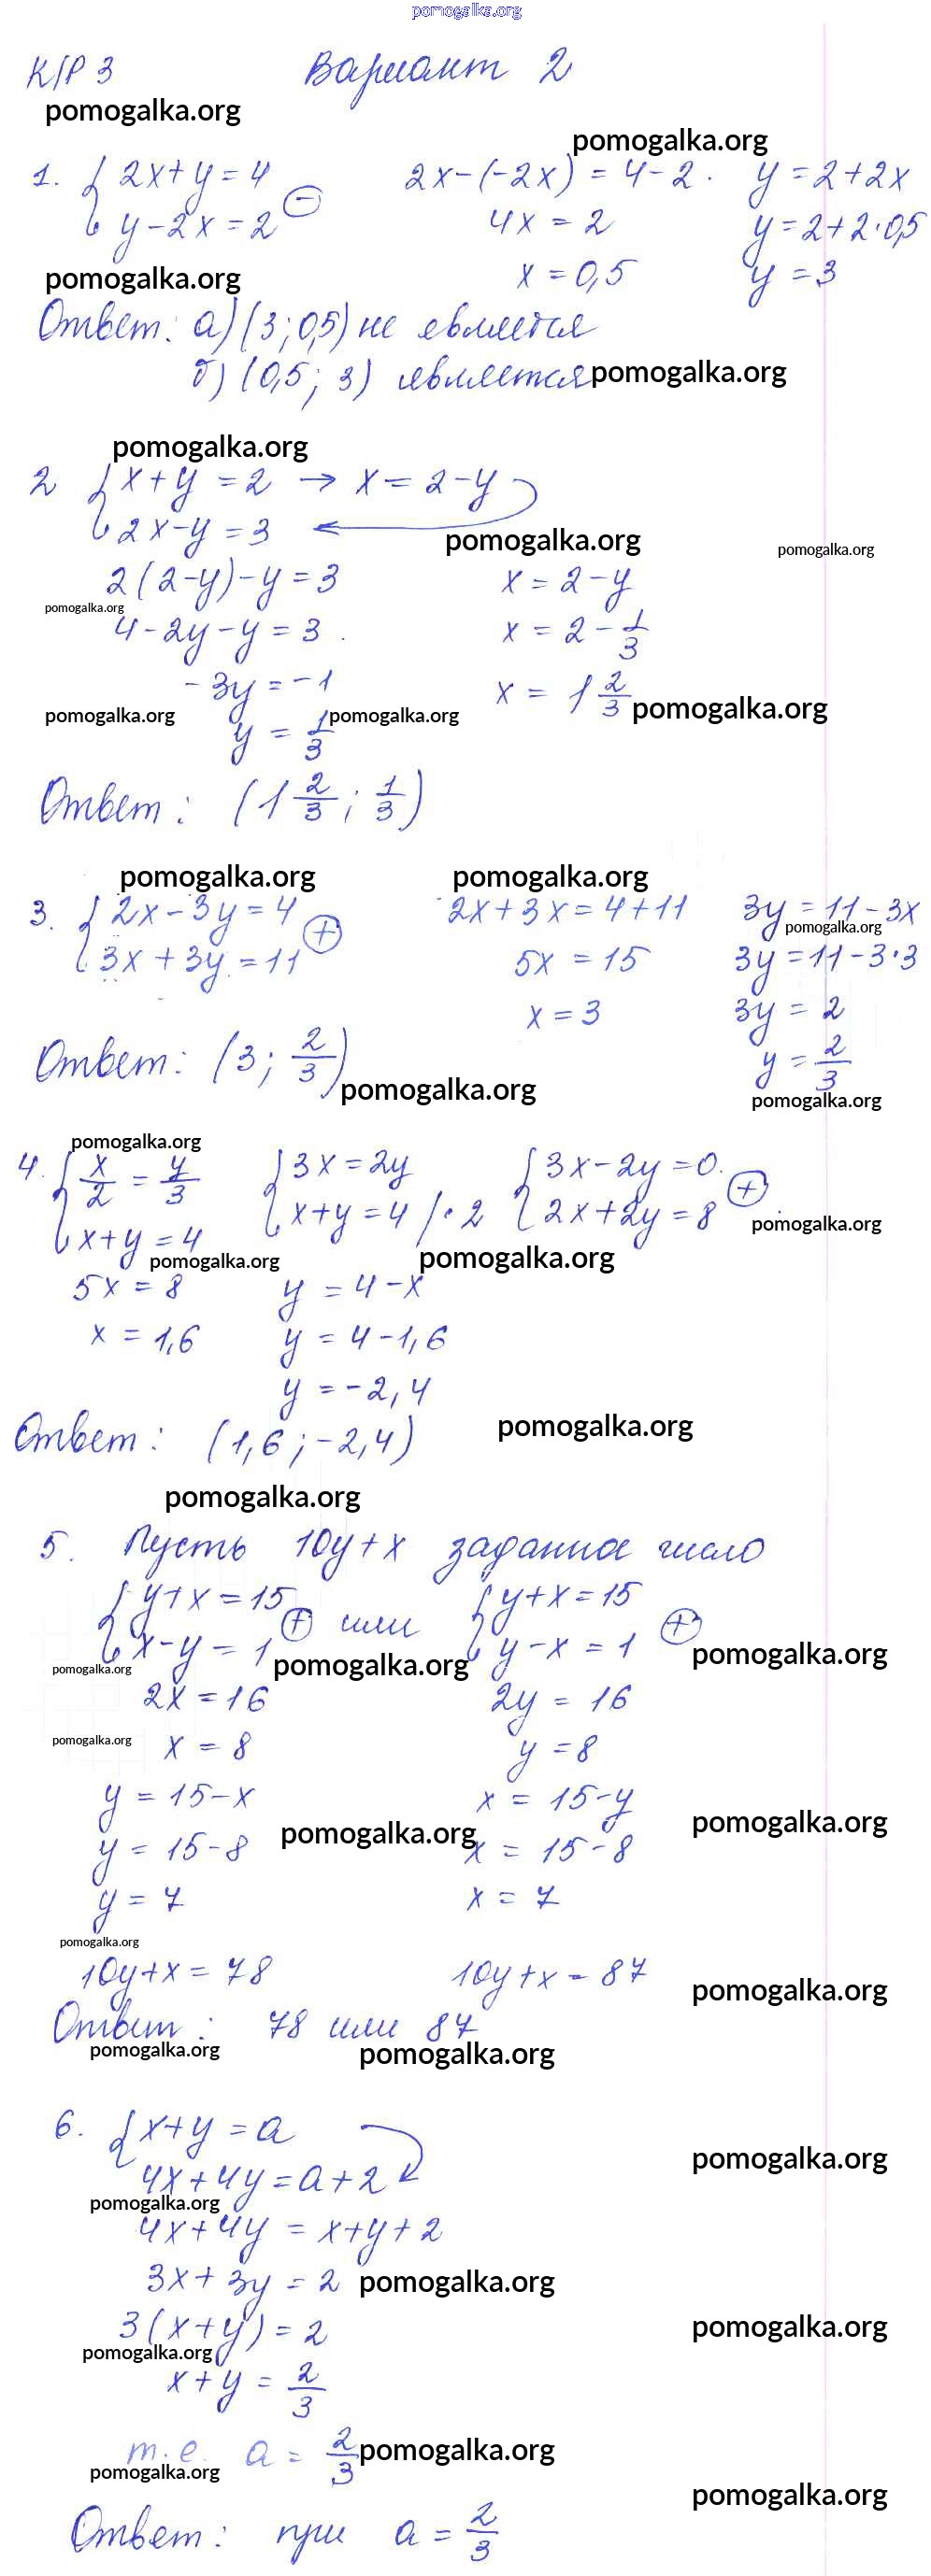 pomogalka.org
К/Р 3 Вариант 2
pomogalka.org
pomogalka.org
1. { 2x+y=4 2x-(-2x)=4-2. y=2+2x
y-2x=2 (-) 4x=2 y=2+2·0,5
pomogalka.org x=0,5 y=3
Ответ: а) (3;0,5) не является
б) (0,5; 3) является pomogalka.org
pomogalka.org
2 { x+y=2 → x=2-y
2x-y=3
pomogalka.org pomogalka.org
2(2-y)-y=3 x=2-y
pomogalka.org
4-2y-y=3. x=2-1/3
-3y=-1 x=1 2/3
pomogalka.org pomogalka.org pomogalka.org
y=1/3
Ответ: (1 2/3; 1/3)
pomogalka.org pomogalka.org
3. { 2x-3y=4 2x+3x=4+11 3y=11-3x
pomogalka.org
3x+3y=11 (+) 5x=15 3y=11-3·3
x=3 3y=2
Ответ: (3; 2/3) y=2/3
pomogalka.org pomogalka.org
pomogalka.org
4. { x/2=y/3 { 3x=2y { 3x-2y=0.
x+y=4 x+y=4 |·2 2x+2y=8 (+)
pomogalka.org
pomogalka.org pomogalka.org
5x=8 y=4-x
x=1,6 y=4-1,6
y=-2,4
Ответ: (1,6;-2,4) pomogalka.org
pomogalka.org
5. Пусть 10y+x заданное число
{ y+x=15 { y+x=15
x-y=1 (+) или y-x=1 (+)
pomogalka.org pomogalka.org pomogalka.org
2x=16 2y=16
pomogalka.org x=8 y=8
y=15-x x=15-y
pomogalka.org pomogalka.org
y=15-8 x=15-8
y=7 x=7
pomogalka.org
10y+x=78 10y+x=87
pomogalka.org
Ответ: 78 или 87
pomogalka.org pomogalka.org
6. { x+y=a
pomogalka.org
4x+4y=a+2
pomogalka.org
4x+4y=x+y+2
3x+3y=2 pomogalka.org
3(x+y)=2 pomogalka.org
pomogalka.org
x+y=2/3
т.е. a=2/3 pomogalka.org
pomogalka.org
pomogalka.org
Ответ: при a=2/3